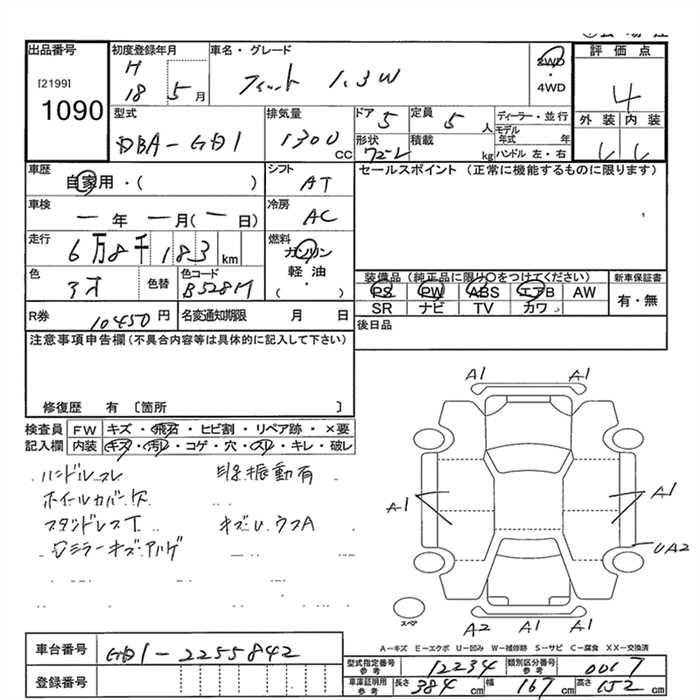 出品番号
[2199]
1090
初度登録年月
H
18 5月
車名・グレード
フィット 1.3W
2WD
・
4WD
評価点
4
外装 内装
型式
DBA-GD1
排気量
1300
cc
ドア 5
定員 5 人
形状
積載
kg
ディーラー・並行
モデル
年式 年
ハンドル 左・右
車歴
自家用・( )
シフト
AT
セールスポイント (正常に機能するものに限ります)
車検
ー年ー月(ー日)
冷房
AC
走行
6万8千183km
燃料
ガソリン
軽油・
( )
色
色替
色コード
B528M
装備品 (純正品に限り○をつけてください)
PS PW ABS エアB AW
SR ナビ TV カワ
新車保証書
有・無
R券
10450円
名変通知期限 月 日
後日品
注意事項申告欄(不具合内容等は具体的に記入して下さい)
修復歴 有 〔箇所 〕
検査員
記入欄
FW キズ・飛石・ヒビ割・リペア跡・×要
内装 キズ・汚レ・コゲ・穴・スレ・キレ・破レ
ハンドルスレ
振動有
ホイールカバーケ
スタッドレスT キズU.ウスA
ミラーキズ.アルゲ
A1 A1
A1 A1
UA2
スペア
A2 A1 A1
A-キズ E-エクボ U-凹み W-補修跡 S-サビ C-腐食 XX-交換済
車台番号
GD1-2255842
登録番号
型式指定番号
参考
12234
類別区分番号
参考
0017
車庫証明用
参考
長さ 384 cm 幅 167 cm 高さ 152 cm